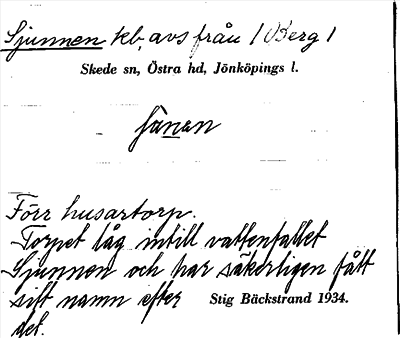 Sjunnen kb, avs från 1 Berg 1
Skede sn, Östra hd, Jönköpings l.
Förr husartorp.
Torpet låg intill vattenfallet
Sjunnen och har säkerligen fått
sitt namn efter Stig Bäckstrand 1934.
det.